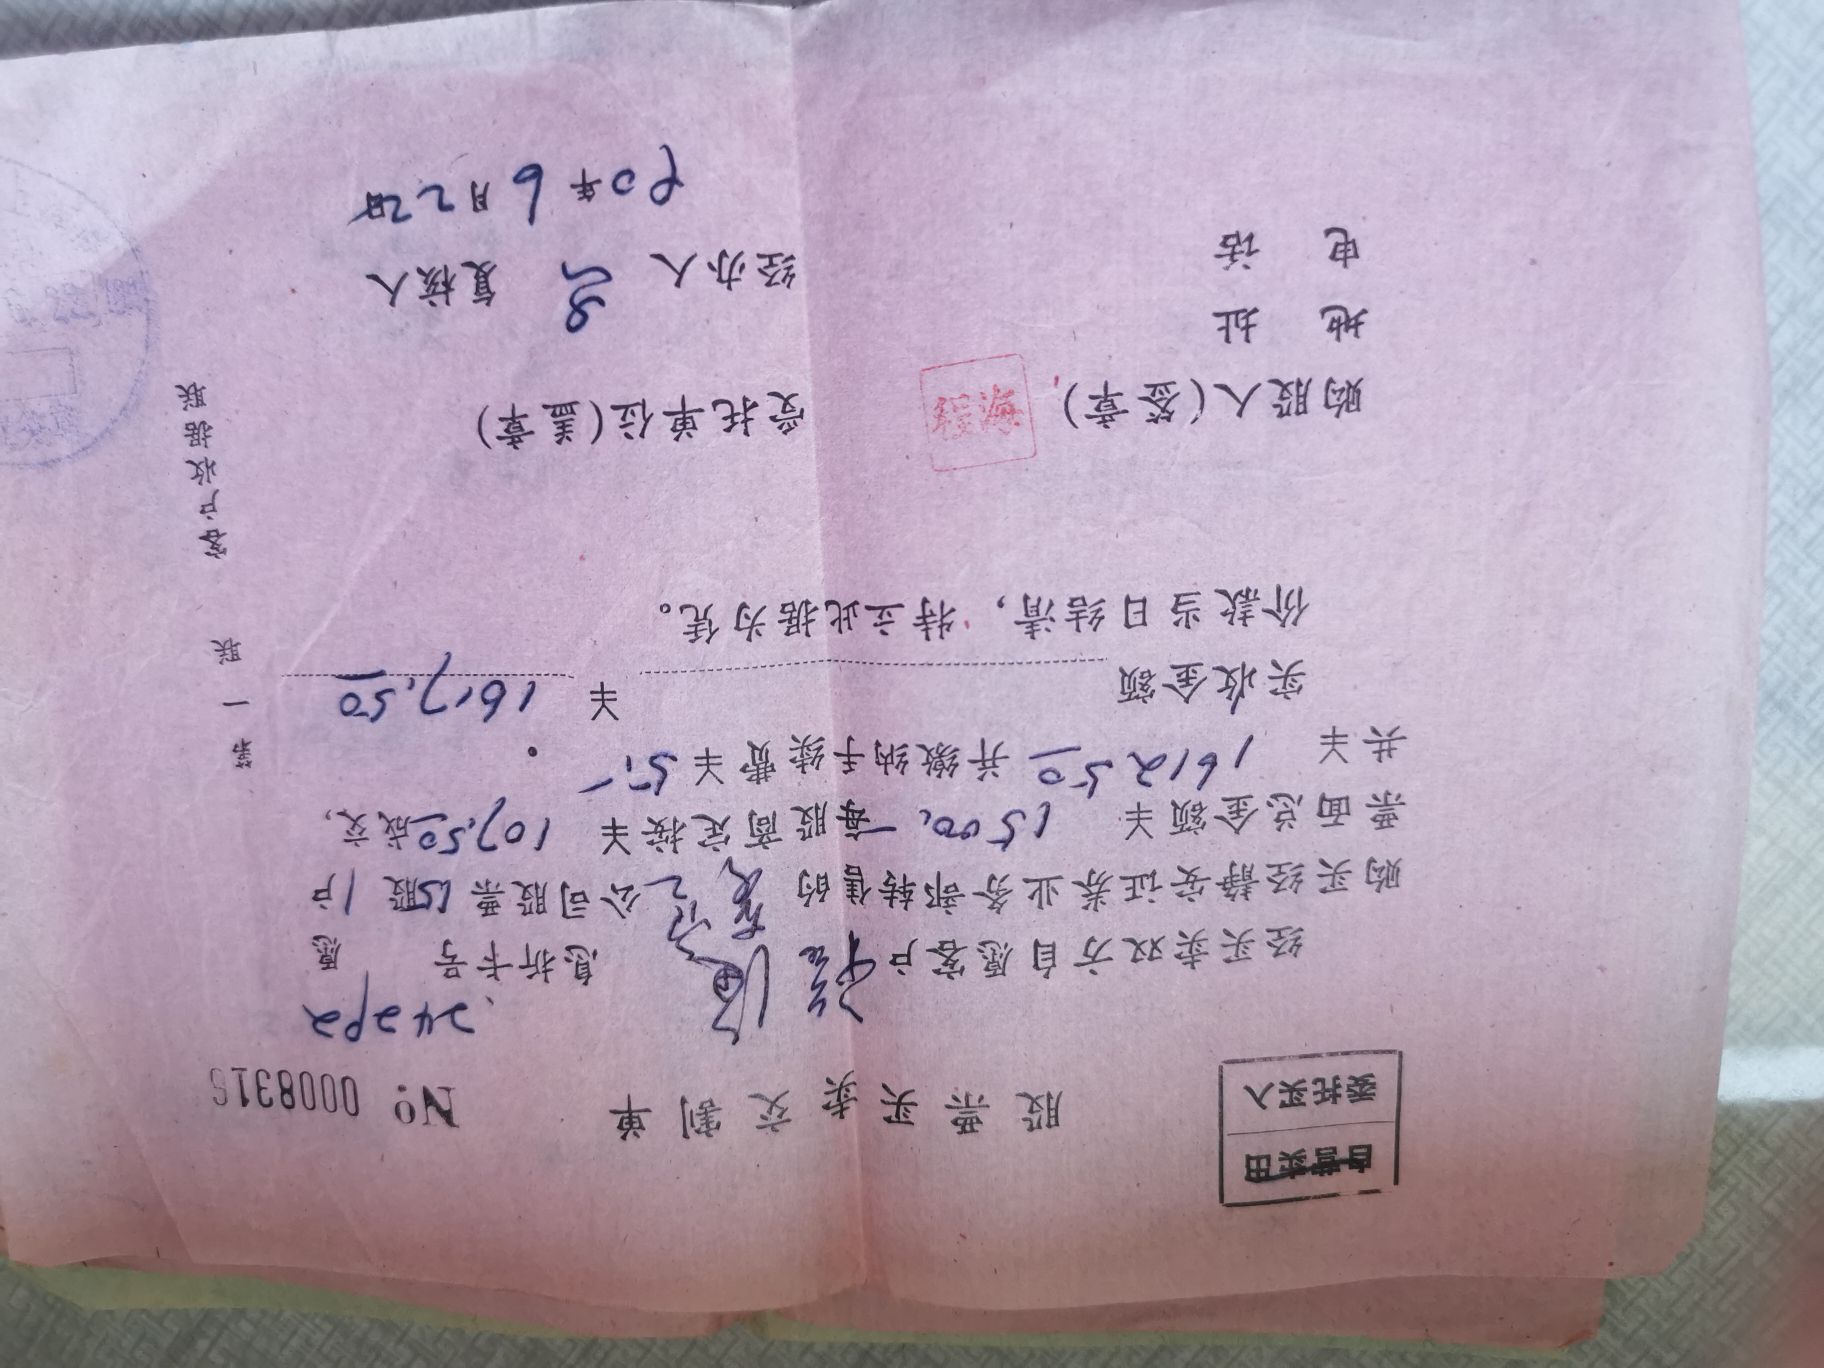 自营卖出
委托买入
股票买卖交割单 No 0008316
24292
经买卖双方自愿客户 程海 息折卡号 愿
购买经静安证券业务部转售的 公司股票 15股 1户
票面总金额¥ 1500.— 每股商定按¥ 107.50 成交,
共¥ 1612.50 并缴纳手续费¥ 5.—
实收金额 ¥ 1617.50
价款当日结清,特立此据为凭。
购股人(签章) 程海 受托单位(盖章)
地 址
电 话 经办人 复核人
90年6月22日
第一联 客户收据联